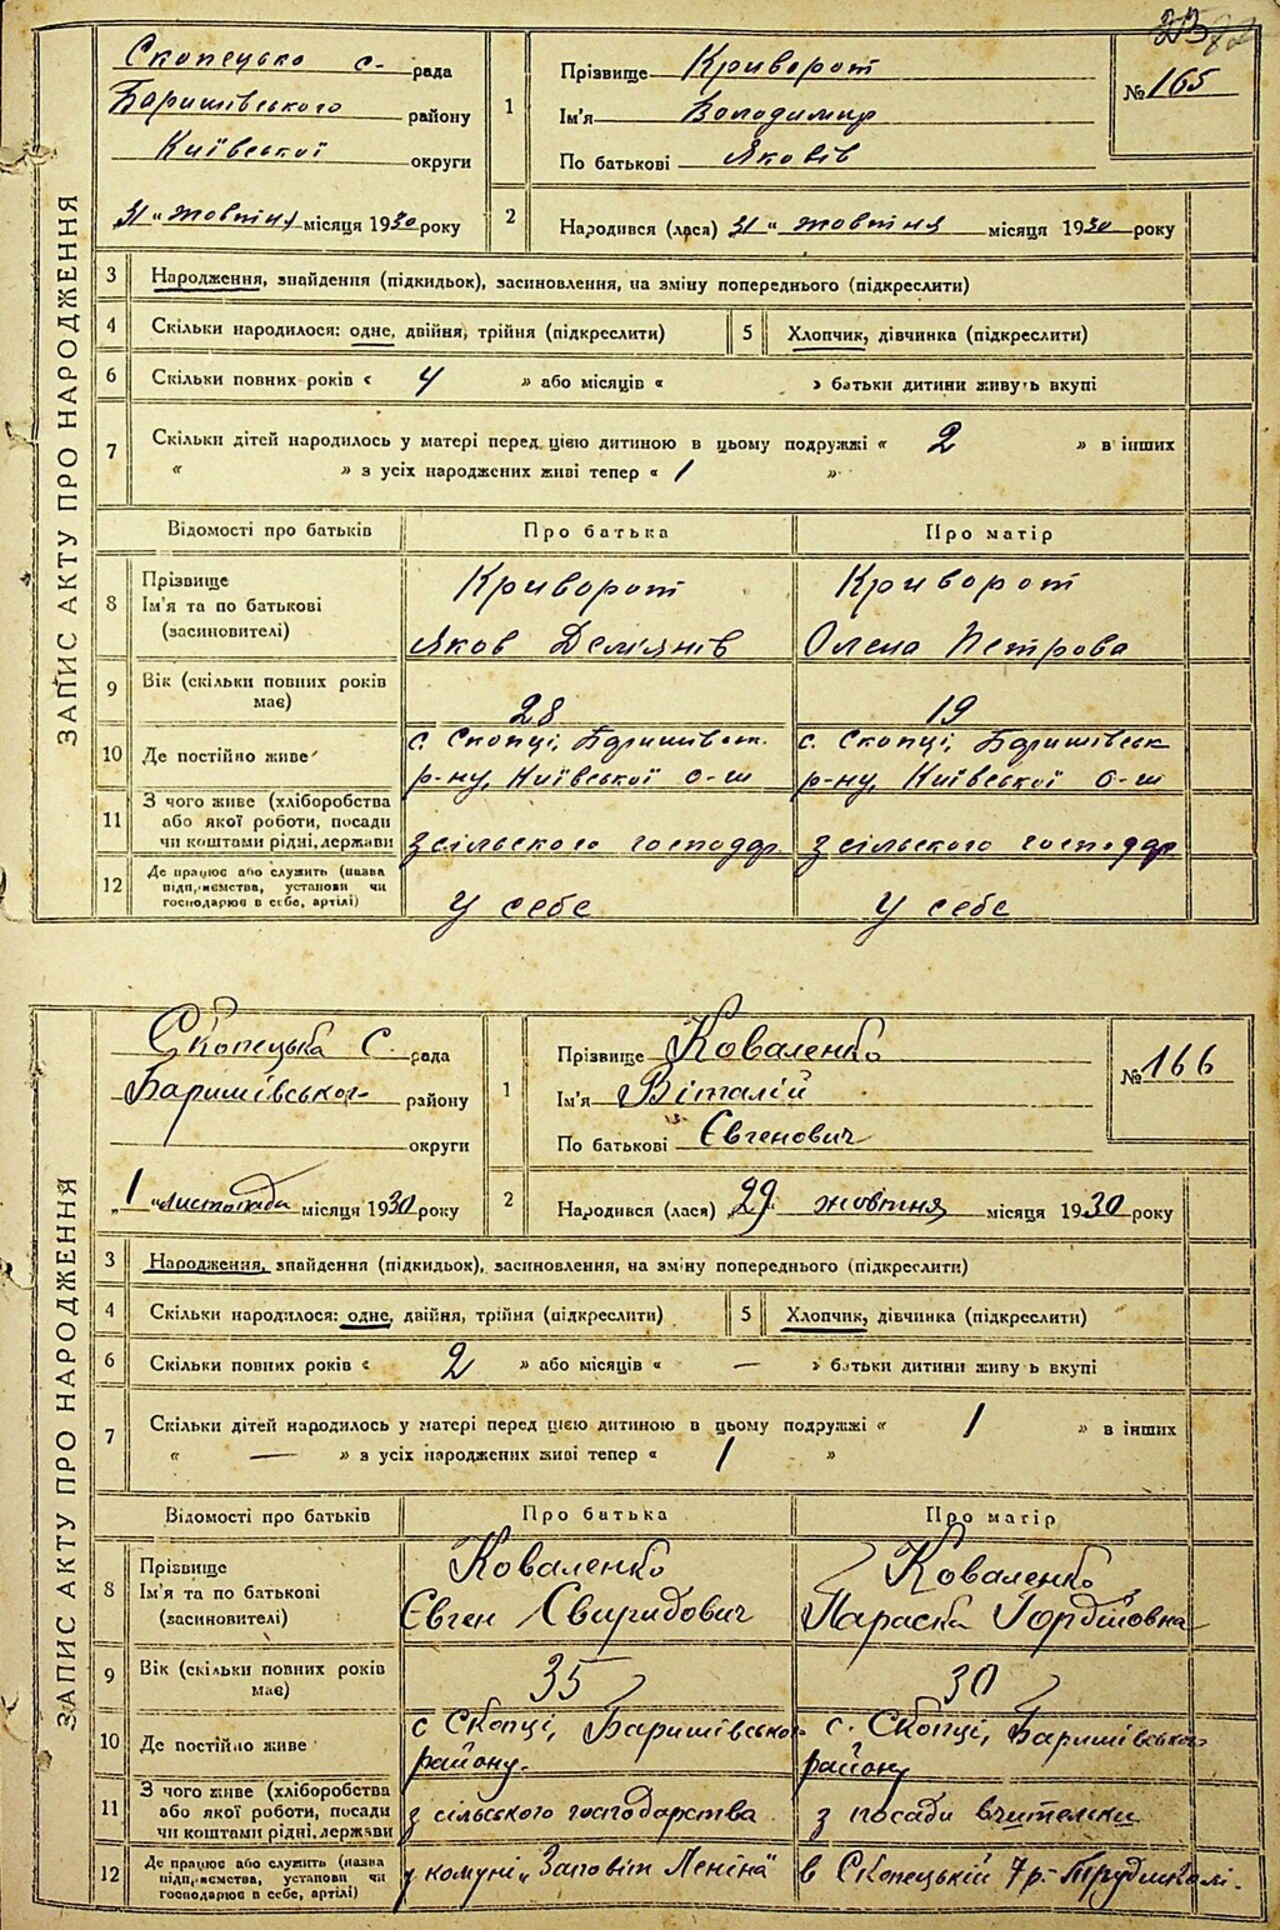 ЗАПИС АКТУ ПРО НАРОДЖЕННЯ
Скопецько с. рада
Баришівського району
Київської округи
„31“ жовтня місяця 1930 року
1 Прізвище Криворот
Ім'я Володимир
По батькові Яковів
№ 165
2 Народився (лася) 31 “ жовтня місяця 1930 року
3 Народження, знайдення (підкидьок), засиновлення, на зміну попереднього (підкреслити)
4 Скільки народилося: одне, двійня, трійня (підкреслити) 5 Хлопчик, дівчинка (підкреслити)
6 Скільки повних років « 4 » або місяців « » батьки дитини живуть вкупі
7 Скільки дітей народилось у матері перед цією дитиною в цьому подружжі « 2 » в інших
« » з усіх народжених живі тепер « 1 »
Відомості про батьків Про батька Про матір
8 Прізвище Криворот Криворот
Ім'я та по батькові
(засиновителі) Яков Дем'янів Олена Петрова
9 Вік (скільки повних років
має) 28 19
10 Де постійно живе с. Скопці, Баришівськ. с. Скопці, Баришівськ
р-ну, Київської о-ги р-ну, Київської о-ги
11 З чого живе (хліборобства
або якої роботи, посади
чи коштами рідні, держави з сільского господар. з сільского господар
12 Де працює або служить (назва
підприємства, установи чи
господарює в себе, артілі) У себе У себе
ЗАПИС АКТУ ПРО НАРОДЖЕННЯ
Скопецька С. рада
Баришівськог- району
округи
„1 “ листопада місяця 1930 року
1 Прізвище Коваленко
Ім'я Віталій
По батькові Євгенович
№ 166
2 Народився (лася) „29“ жовтня місяця 1930 року
3 Народження, знайдення (підкидьок), засиновлення, на зміну попереднього (підкреслити)
4 Скільки народилося: одне, двійня, трійня (підкреслити) 5 Хлопчик, дівчинка (підкреслити)
6 Скільки повних років « 2 » або місяців « — » батьки дитини живуть вкупі
7 Скільки дітей народилось у матері перед цією дитиною в цьому подружжі « 1 » в інших
« — » з усіх народжених живі тепер « 1 »
Відомості про батьків Про батька Про матір
8 Прізвище Коваленко Коваленко
Ім'я та по батькові
(засиновителі) Євген Свиридович Параска Гордіïовна
9 Вік (скільки повних років
має) 35 30
10 Де постійно живе с Скопці, Баришівськог- с. Скопці, Баришівськог-
району. району
11 З чого живе (хліборобства
або якої роботи, посади
чи коштами рідні, держави з сільського господарства з посади вчительки
12 Де працює або служить (назва
підприємства, установи чи
господарює в себе, артілі) у комуні „Заповіт Леніна“ в Скопецькій 7 р. Трудшколі.